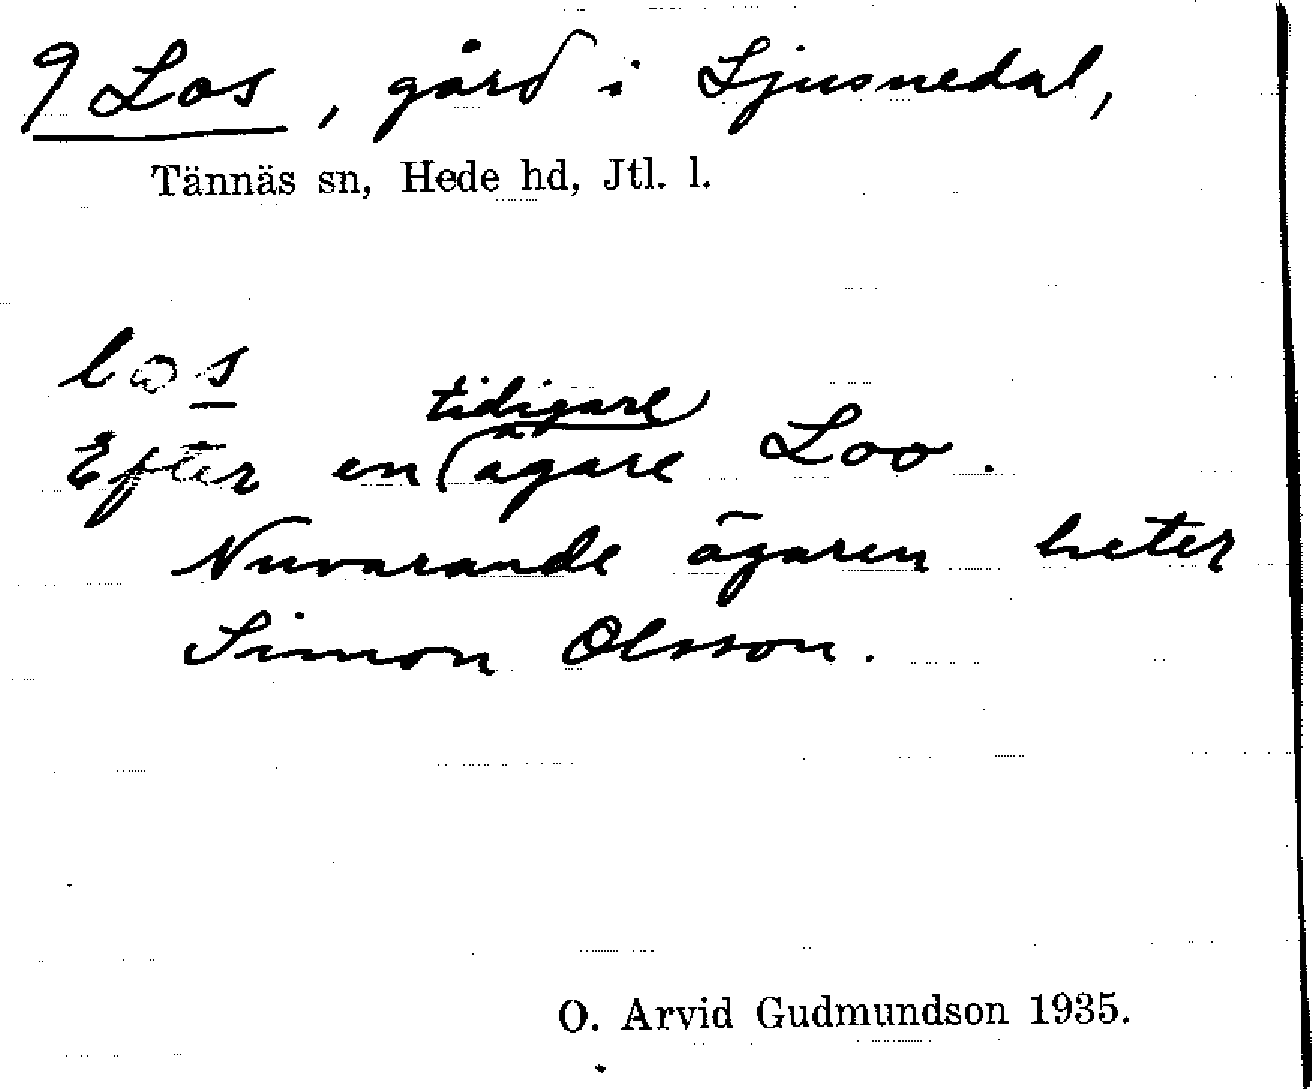 9 Los, gård i Ljusnedal,
Tännäs sn, Hede hd, Jtl. l.
los
Efter en tidigare ägare Loo.
Nuvarande ägaren heter
Simon Olsson.
O. Arvid Gudmundson 1935.